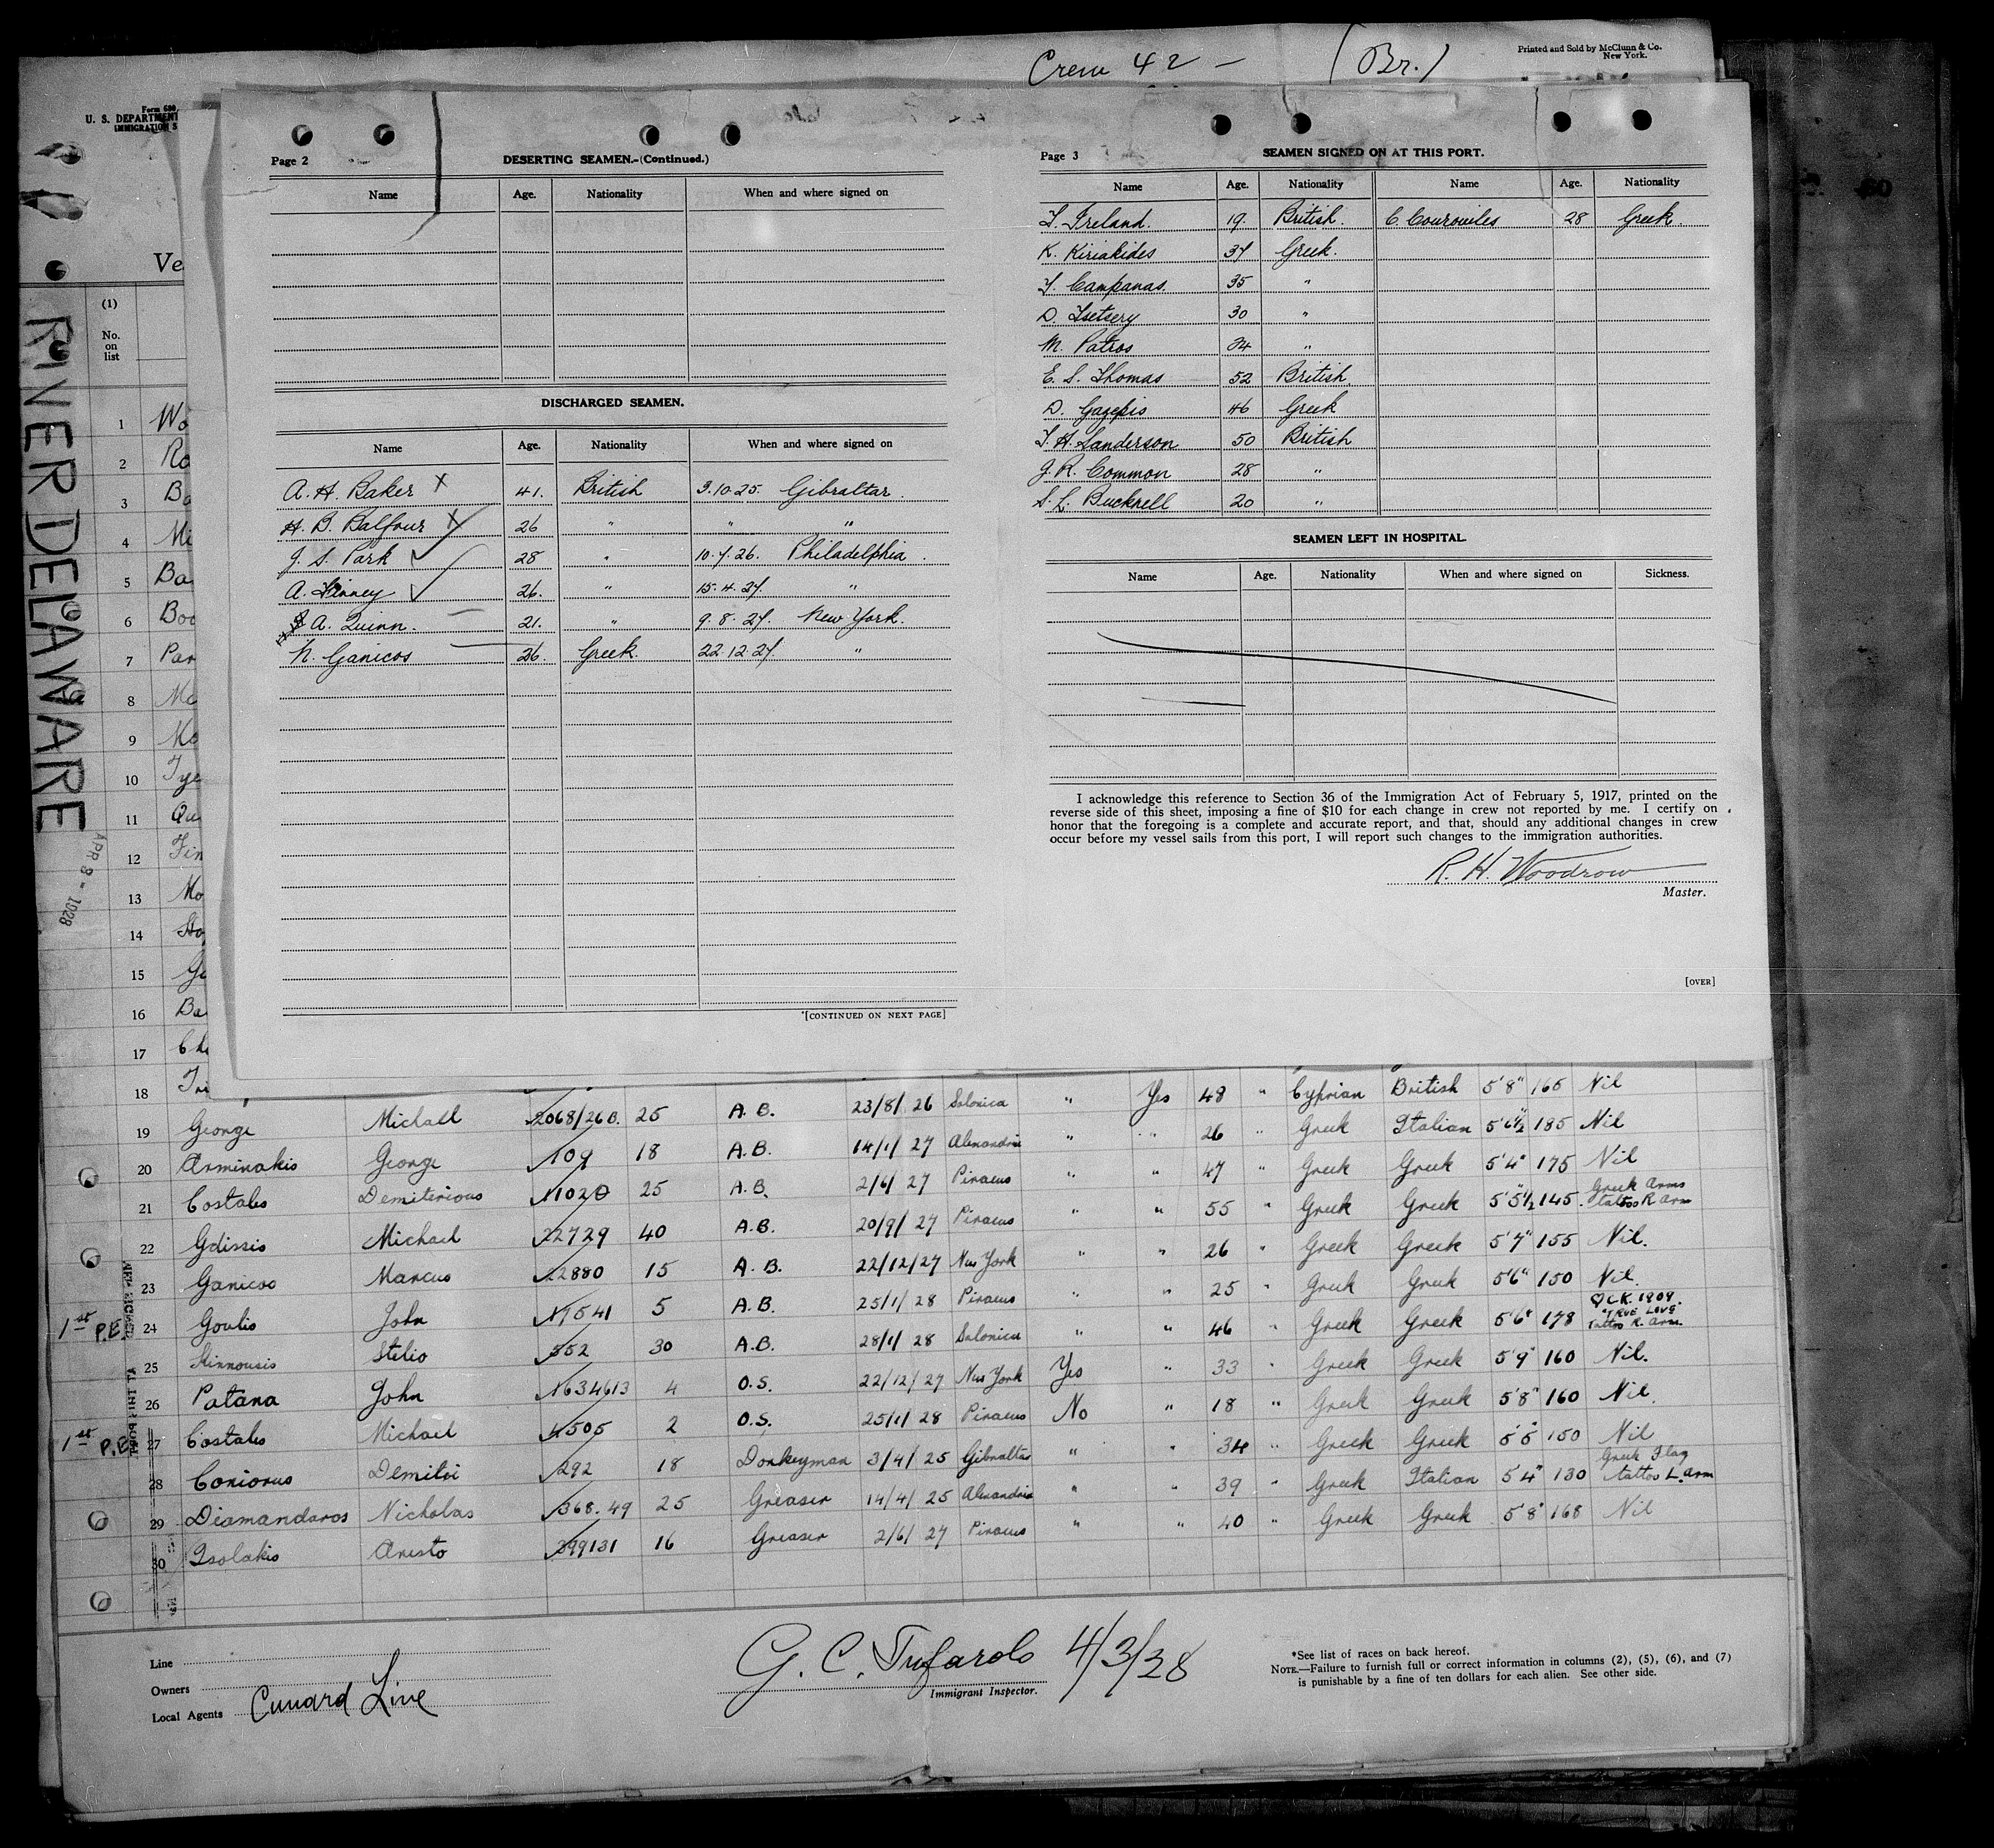 Crew 42 – (Br.)
Printed and Sold by McClunn & Co.
New York.
Form 680
U. S. DEPARTMENT
IMMIGRATION S
Ve
(1)
No.
on
list
RIVER DELAWARE
APR 8 - 1928
1 Wo
2 Ro
3 Ba
4 Mi
5 Ba
6 Boo
7 Par
8 Mc
9 Mo
10 Tye
11 Qu
12 Fin
13 Mo
14 Sto
15 Ga
16 Ba
17 Ch
18 Tri
Page 2
DESERTING SEAMEN.-(Continued.)
Name Age. Nationality When and where signed on
DISCHARGED SEAMEN.
Name Age. Nationality When and where signed on
A. H. Baker X 41. British 3.10.25. Gibraltar.
H. B. Balfour X 26 " " "
J. S. Park ✓ 28 " 10.7.26. Philadelphia.
A. Finney ✓ 26. " 15.4.27. "
A. Quinn. 21. " 9.8.27. New York.
N. Ganicos 26. Greek. 22.12.27. "
*[CONTINUED ON NEXT PAGE]
Page 3
SEAMEN SIGNED ON AT THIS PORT.
Name Age. Nationality Name Age. Nationality
T. Ireland. 19. British. C. Courouiles 28 Greek.
K. Kiriakides 37 Greek.
Y. Campanas. 35 "
D. Tsetsery 30 "
M. Patros 24 "
E. S. Thomas 52 British
D. Gazepis 46 Greek
T. H. Sanderson 50 British
J. R. Common 28 "
S. L. Bucknell 20 "
SEAMEN LEFT IN HOSPITAL.
Name Age. Nationality When and where signed on Sickness.
I acknowledge this reference to Section 36 of the Immigration Act of February 5, 1917, printed on the
reverse side of this sheet, imposing a fine of $10 for each change in crew not reported by me. I certify on
honor that the foregoing is a complete and accurate report, and that, should any additional changes in crew
occur before my vessel sails from this port, I will report such changes to the immigration authorities.
R. H. Woodrow
Master.
[OVER]
19 George Michael 2068/26B. 25 A.B. 23/8/26 Salonica " Yes 48 " Cyprian British 5'8" 165 Nil
20 Arminakis George 109 18 A.B. 14/1/27 Alexandria " " 26 " Greek Italian 5'6½" 185 Nil
21 Costales Demiterious 11020 25 A.B. 2/6/27 Piraeus " " 47 " Greek Greek 5'4" 175 Nil
22 Gdissis Michael 22729 40 A.B. 20/9/27 Piraeus " " 55 " Greek Greek 5'5½" 145. Greek Arms tattoo R arm
23 Ganicos Marcus 22880 15 A.B. 22/12/27 New York " " 26 " Greek Greek 5'7" 155 Nil.
1st P.E. 24 Goulis John 17541 5 A.B. 25/1/28 Piraeus " " 25 " Greek Greek 5'6" 150 Nil.
25 Stinnousis Stelio 552 30 A.B. 28/1/28 Salonica " " 46 " Greek Greek 5'6" 178 C.K. 1909 "TRUE LOVE" Tattoo R. arm.
26 Patana John 1634613 4 O.S. 22/12/27 New York Yes " 33 " Greek Greek 5'9" 160 Nil.
1st P.E. 27 Costales Michael 4505 2 O.S. 25/1/28 Piraeus No " 18 " Greek Greek 5'8" 160 Nil.
28 Coniorus Demitri 292 18 Donkeyman 3/4/25 Gibraltar " " 34 " Greek Greek 5'5" 150 Nil
29 Diamandaros Nicholas 368.49 25 Greaser 14/4/25 Alexandria " " 39 " Greek Italian 5'4" 130 Greek Flag tattoo L. arm
30 Tsolakis Aristo 399131 16 Greaser 2/6/27 Piraeus " " 40 " Greek Greek 5'8" 168 Nil
AT THIS PORT
Line
Owners
Local Agents Cunard Line
G. C. Tufarolo 4/3/28
Immigrant Inspector.
*See list of races on back hereof.
NOTE.—Failure to furnish full or correct information in columns (2), (5), (6), and (7)
is punishable by a fine of ten dollars for each alien. See other side.